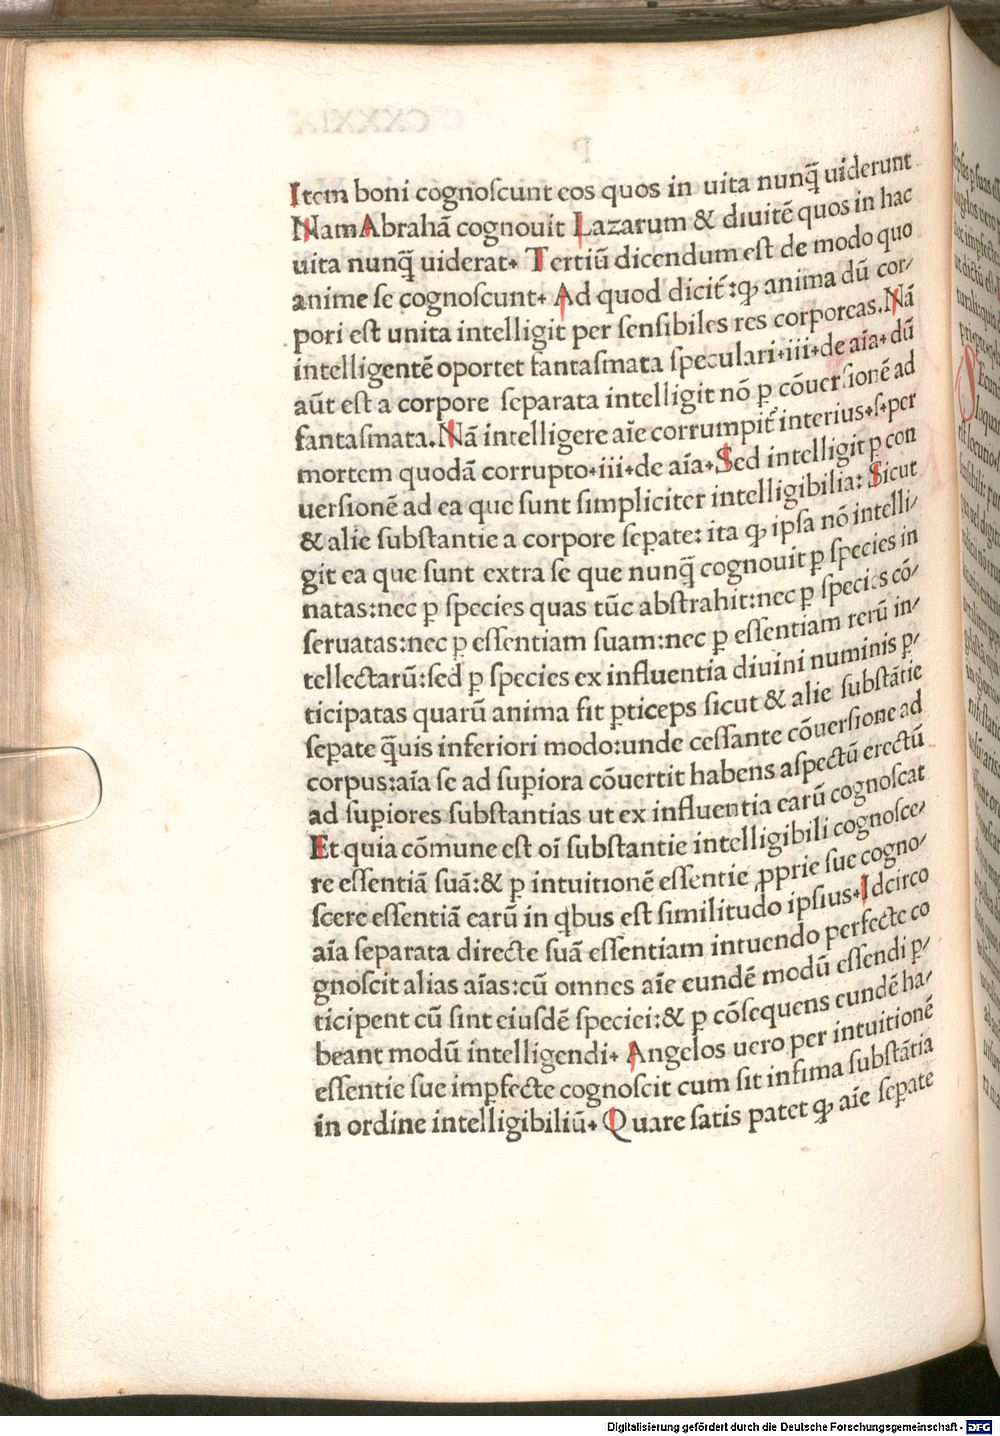 Item boni cognoſcunt eos quos in uita nunq̃ uiderunt
Nam Abrahã cognouit Lazarum & diuitẽ quos in hac
uita nunq̃ uiderat. Tertiũ dicendum eſt de modo quo
anime ſe cognoſcunt. Ad quod dicit̃: ꝙ anima dũ cor/
pori eſt unita intelligit per ſenſibiles res corporeas. Nã
intelligentẽ oportet fantaſmata ſpeculari.iii.de aĩa. dũ
aũt eſt a corpore ſeparata intelligit nõ ꝑ cõuerſionẽ ad
fantaſmata. Nã intelligere aĩe corrumpit̃ interius.ſ.per
mortem quodã corrupto.iii.de aĩa. Sed intelligit ꝑ con
uerſionẽ ad ea que ſunt ſimpliciter intelligibilia: Sicut
& alie ſubſtantie a corpore ſeꝑate: ita ꝙ ipſa nõ intelli/
git ea que ſunt extra ſe que nunq̃ cognouit ꝑ ſpecies in
natas: nec ꝑ ſpecies quas tũc abſtrahit: nec ꝑ ſpecies cõ/
ſeruatas: nec ꝑ eſſentiam ſuam: nec ꝑ eſſentiam rerũ in/
tellectarũ: ſed ꝑ ſpecies ex influentia diuini numinis ꝑ/
ticipatas quarũ anima fit ꝑticeps ſicut & alie ſubſtãtie
ſeꝑate q̃uis inferiori modo: unde ceſſante cõuerſione ad
corpus: aĩa ſe ad ſuꝑiora cõuertit habens aſpectũ erectũ
ad ſuꝑiores ſubſtantias ut ex influentia earũ cognoſcat
Et quia cõmune eſt oĩ ſubſtantie intelligibili cognoſce/
re eſſentiã ſuã: & ꝑ intuitionẽ eſſentie ꝓprie ſue cogno/
ſcere eſſentiã earũ in qbus eſt ſimilitudo ipſius. Idcirco
aĩa ſeparata directe ſuã eſſentiam intuendo perfecte co
gnoſcit alias aĩas: cũ omnes aĩe eundẽ modũ eſſendi ꝑ/
ticipent cũ ſint eiuſdẽ ſpeciei: & ꝑ cõſequens eundẽ ha/
beant modũ intelligendi. Angelos uero per intuitionẽ
eſſentie ſue imꝑfecte cognoſcit cum ſit infima ſubſtãtia
in ordine intelligibiliũ. Quare ſatis patet ꝙ aĩe ſeꝑate
Digitalisierung gefördert durch die Deutsche Forschungsgemeinschaft - DFG